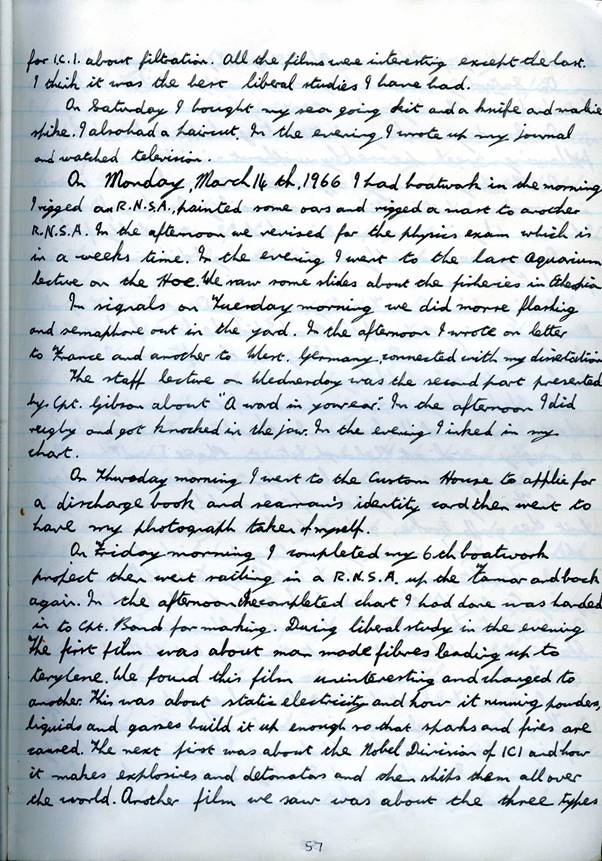 for I.C.I. about filtration. All the films were interesting except the last.
I think it was the best liberal studies I have had.
On Saturday I bought my sea going kit and a knife and
spike. I also had a haircut. In the evening I wrote up my journal
and watched television.
On Monday, March 14th, 1966 I had boatwork in the morning
I rigged an R.N.S.A., painted some oars and rigged a mast to another
R.N.S.A. In the afternoon we revised for the physics exam which is
in a weeks time. In the evening I went to the last Aquarium
lecture on the Hoe. We saw some slides about the fisheries in
In signals on Tuesday morning we did morse flashing
and semaphore out in the yard. In the afternoon I wrote on letter
to France and another to West. Germany, connected with my disertation
The staff lecture on Wednesday was the second part presented
by Cpt. Gibson about "A word in your ear". In the afternoon I did
rugby and got knocked in the jaw. In the evening I inked in my
chart.
On Thursday morning I went to the Custom House to applie for
a discharge book and seaman's identity card then went to
have my photograph taken of myself.
On Friday morning I completed my 6th boatwork
project then went sailing in a R.N.S.A. up the Tamar and back
again. In the afternoon the completed chart I had done was handed
in to Cpt. Bond for marking. During liberal study in the evening
the first film was about man made fibres leading up to
terylene. We found this film uninteresting and changed to
another. This was about static electricity and how it running powders,
liquids and gasses build it up enough so that sparks and fires are
caused. The next first was about the Nobel Division of ICI and how
it makes explosives and detonators and then ships them all over
the world. Another film we saw was about the three types
57